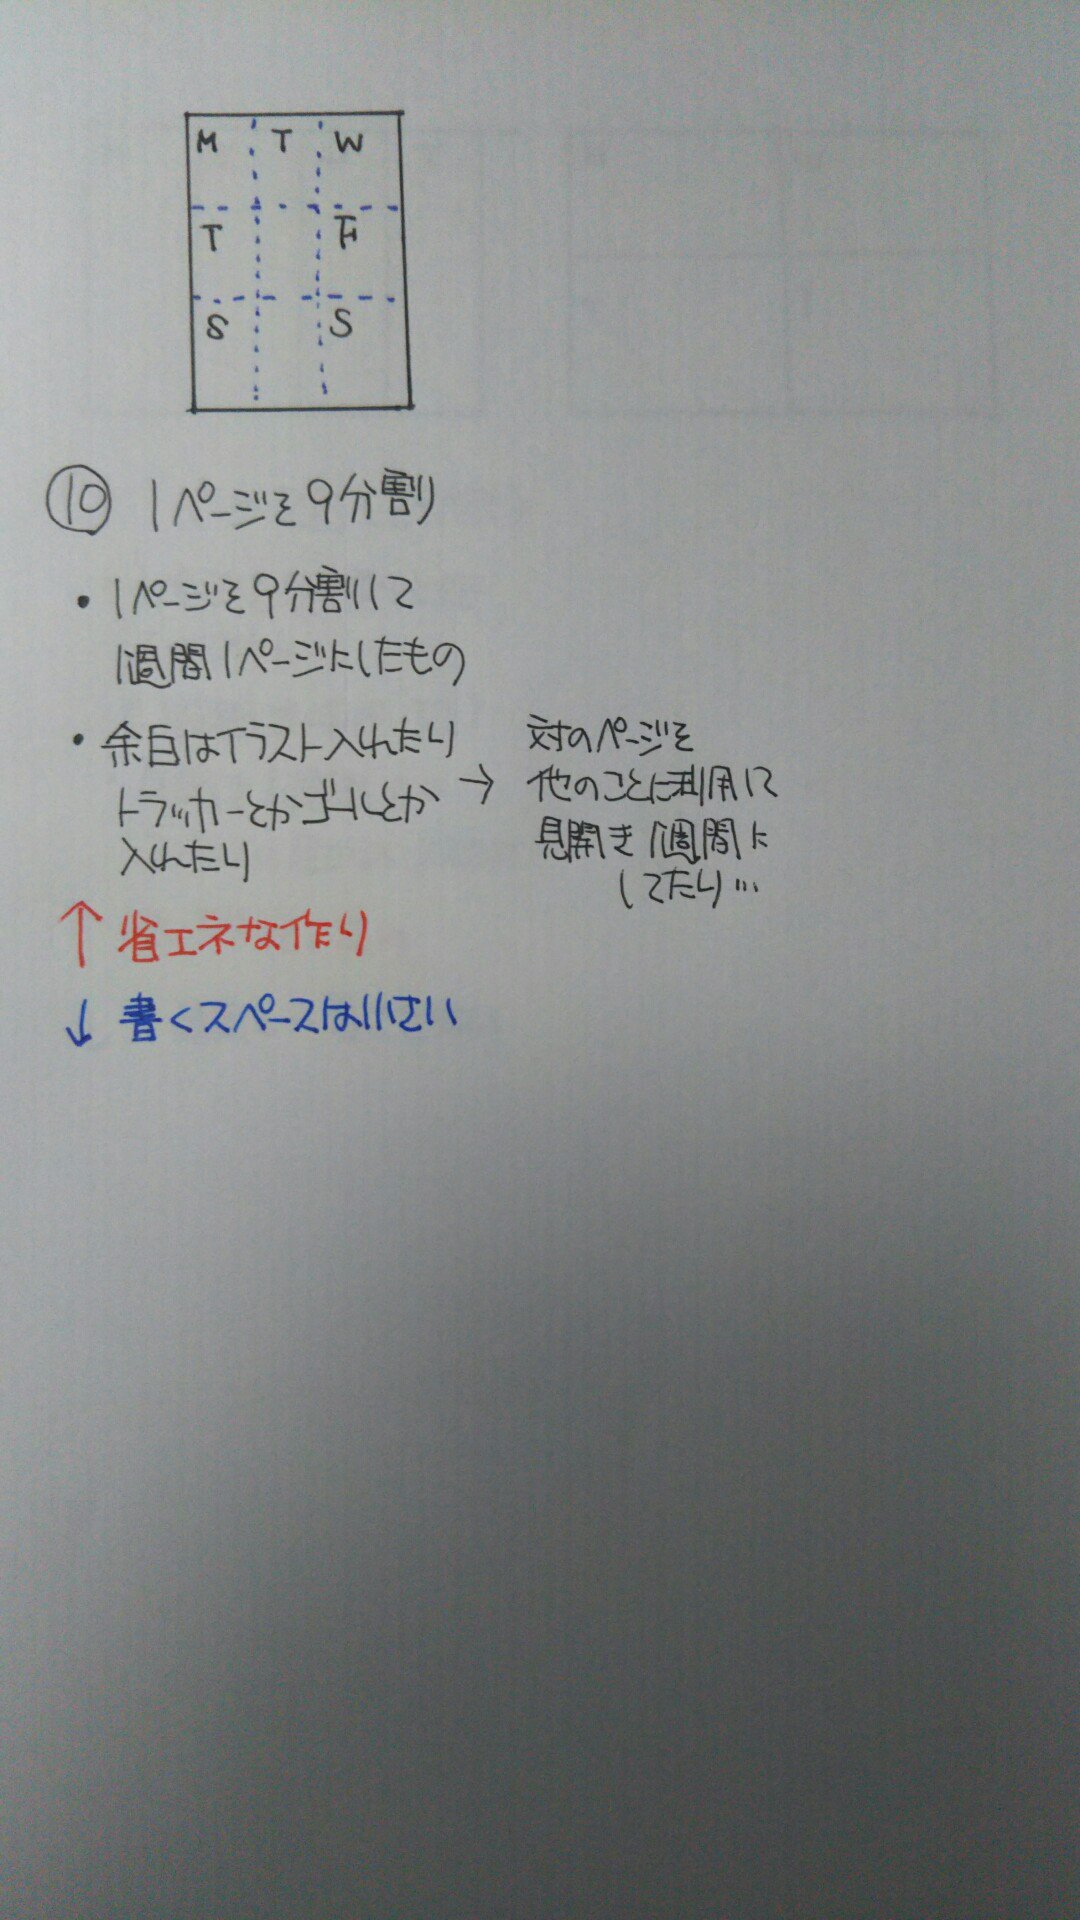 M T W
T F
S S
⑩ 1ページを9分割
・1ページを9分割して
1週間1ページにしたもの
・余白はイラスト入れたり
トラッカーとかゴールとか
入れたり
→ 対のページを
他のことに利用して
見開き1週間に
してたり…
↑ 省エネな作り
↓ 書くスペースは小さい